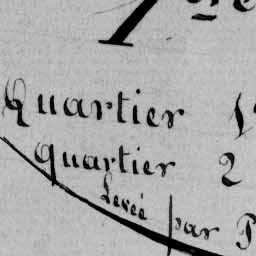 Quartier 1
Quartier 2
Levée par